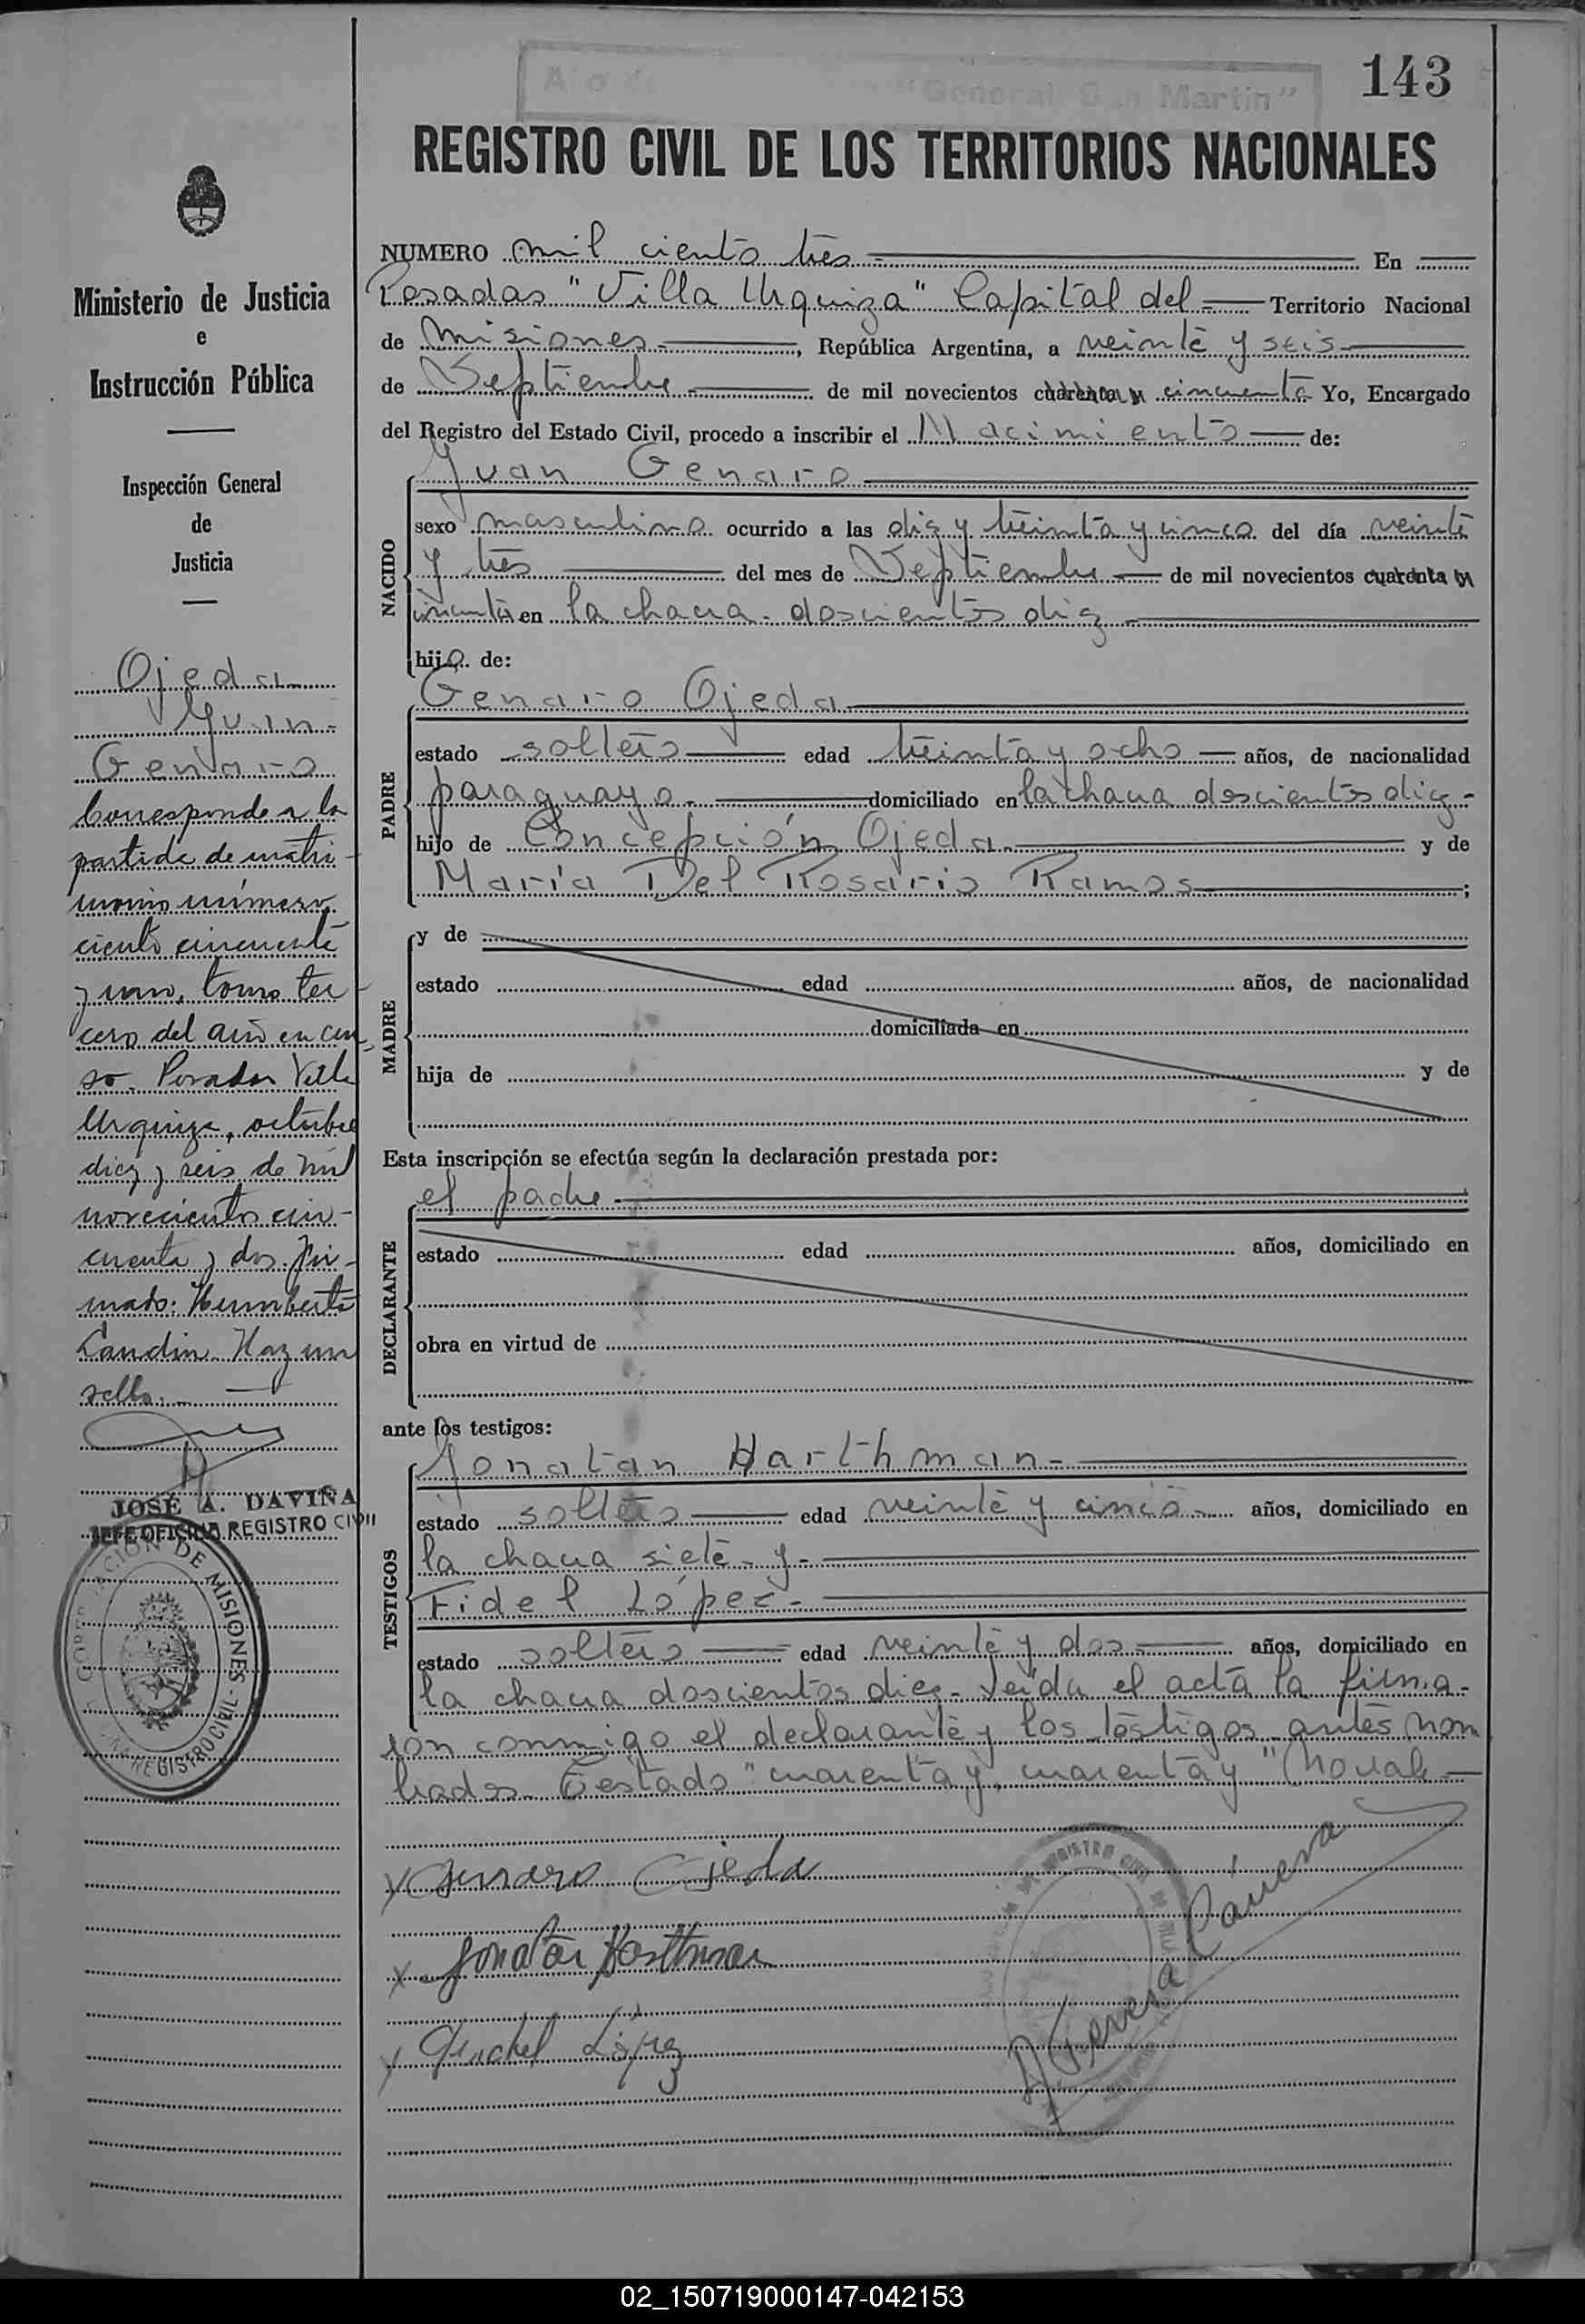 143
"General San Martin"
REGISTRO CIVIL DE LOS TERRITORIOS NACIONALES
Ministerio de Justicia
e
Instrucción Pública
Inspección General
de
Justicia
Ojeda
Juan
Genaro
Corresponde a la
partida de matri-
monio número
ciento cincuenta
y uno, tomo ter-
cero del año en cur-
so. Posadas Villa
Urquiza, octubre
diez y seis de mil
novecientos cin-
cuenta y dos. Fir-
mado: Humberto
Landin. Hay un
sello.
JOSÉ A. DAVIÑA
JEFE OFICINA REGISTRO CIVIL
GOBERNACION DE MISIONES - REGISTRO CIVIL
NUMERO mil ciento tres En
Posadas "Villa Urquiza" Capital del Territorio Nacional
de Misiones, República Argentina, a veinte y seis
de Septiembre de mil novecientos cuarenta y cincuenta Yo, Encargado
del Registro del Estado Civil, procedo a inscribir el Nacimiento de:
Juan Genaro
NACIDO
sexo masculino ocurrido a las diez y treinta y cinco del día veinte
y tres del mes de Septiembre de mil novecientos cuarenta y
cincuenta en la chacra doscientos diez
hijo de:
Genaro Ojeda
PADRE
estado soltero edad treinta y ocho años, de nacionalidad
paraguayo domiciliado en la chacra doscientos diez
hijo de Concepción Ojeda y de
María Del Rosario Ramos;
MADRE
y de
estado edad años, de nacionalidad
domiciliada en
hija de y de
Esta inscripción se efectúa según la declaración prestada por:
el padre
DECLARANTE
estado edad años, domiciliado en
obra en virtud de
ante los testigos:
Jonatan Harthman
TESTIGOS
estado soltero edad veinte y cinco años, domiciliado en
la chacra siete y
Fidel López
estado soltero edad veinte y dos años, domiciliado en
la chacra doscientos diez. Leida el acta la firma-
ron conmigo el declarante y los testigos antes nom
brados. Testado "cuarenta y, cuarenta y" No vale
x Genaro Ojeda
x Jonatan Harthman
x López
REGISTRO CIVIL
02_150719000147-042153